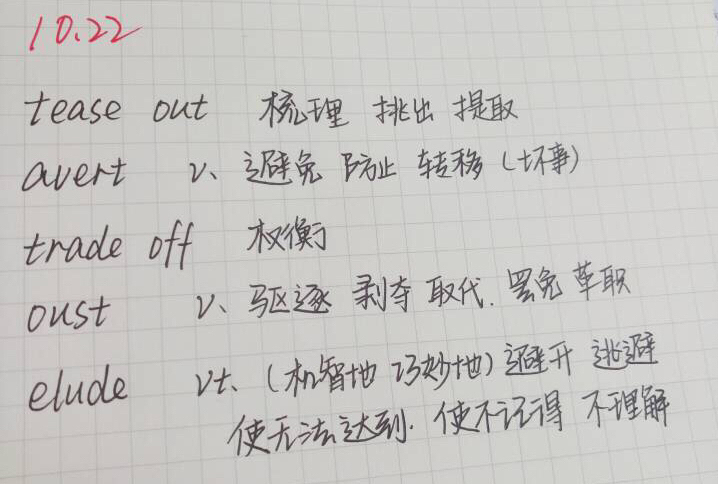 10.22
tease out 梳理 挑出 提取
avert v、避免 防止 转移 (坏事)
trade off 权衡
oust v、驱逐 剥夺 取代. 罢免 革职
elude vt. (机智地 巧妙地) 避开 逃避
使无法达到. 使不记得 不理解